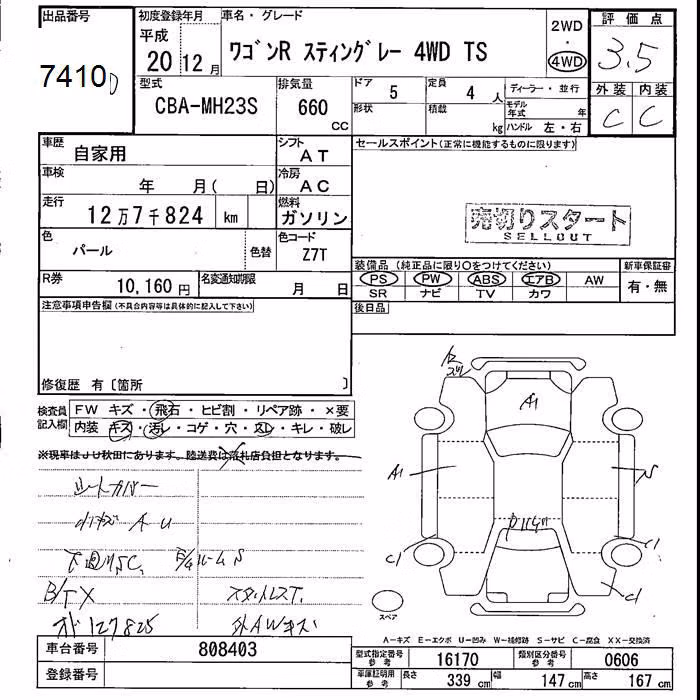 出品番号
7410D
初度登録年月
平成
20 12月
車名・グレード
ワゴンR スティングレー 4WD TS
2WD
・
4WD
評価点
3.5
外装 内装
C C
型式
CBA-MH23S
排気量
660
CC
ドア
5
形状
定員
4 人
積載
kg
ディーラー・並行
モデル年式 年
ハンドル 左・右
車歴
自家用
シフト
AT
車検
年 月( 日)
冷房
AC
走行
12万7千824 km
燃料
ガソリン
色
パール
色替
色コード
Z7T
R券
10,160円
名変通知期限
月 日
セールスポイント(正常に機能するものに限ります)
売切りスタート
SELLOUT
装備品 (純正品に限り○をつけてください)
PS PW ABS エアB AW
SR ナビ TV カワ
新車保証書
有・無
後日品
注意事項申告欄(不具合内容等は具体的に記入して下さい)
修復歴 有〔箇所 〕
検査員記入欄
FW キズ・飛石・ヒビ割・リペア跡・×要
内装 キズ・汚レ・コゲ・穴・スレ・キレ・破レ
※現車はJU秋田にあります。陸送費は落札店負担となります。
シートカバー
A U
B/TX
127825
外AWキズ
A1
A1
C1
C1
C1
スペア
A-キズ E-エクボ U-凹み W-補修跡 S-サビ C-腐食 XX-交換済
車台番号
808403
登録番号
型式指定番号 参考
16170
類別区分番号 参考
0606
車庫証明用 参考
長さ 339 cm 幅 147 cm 高さ 167 cm